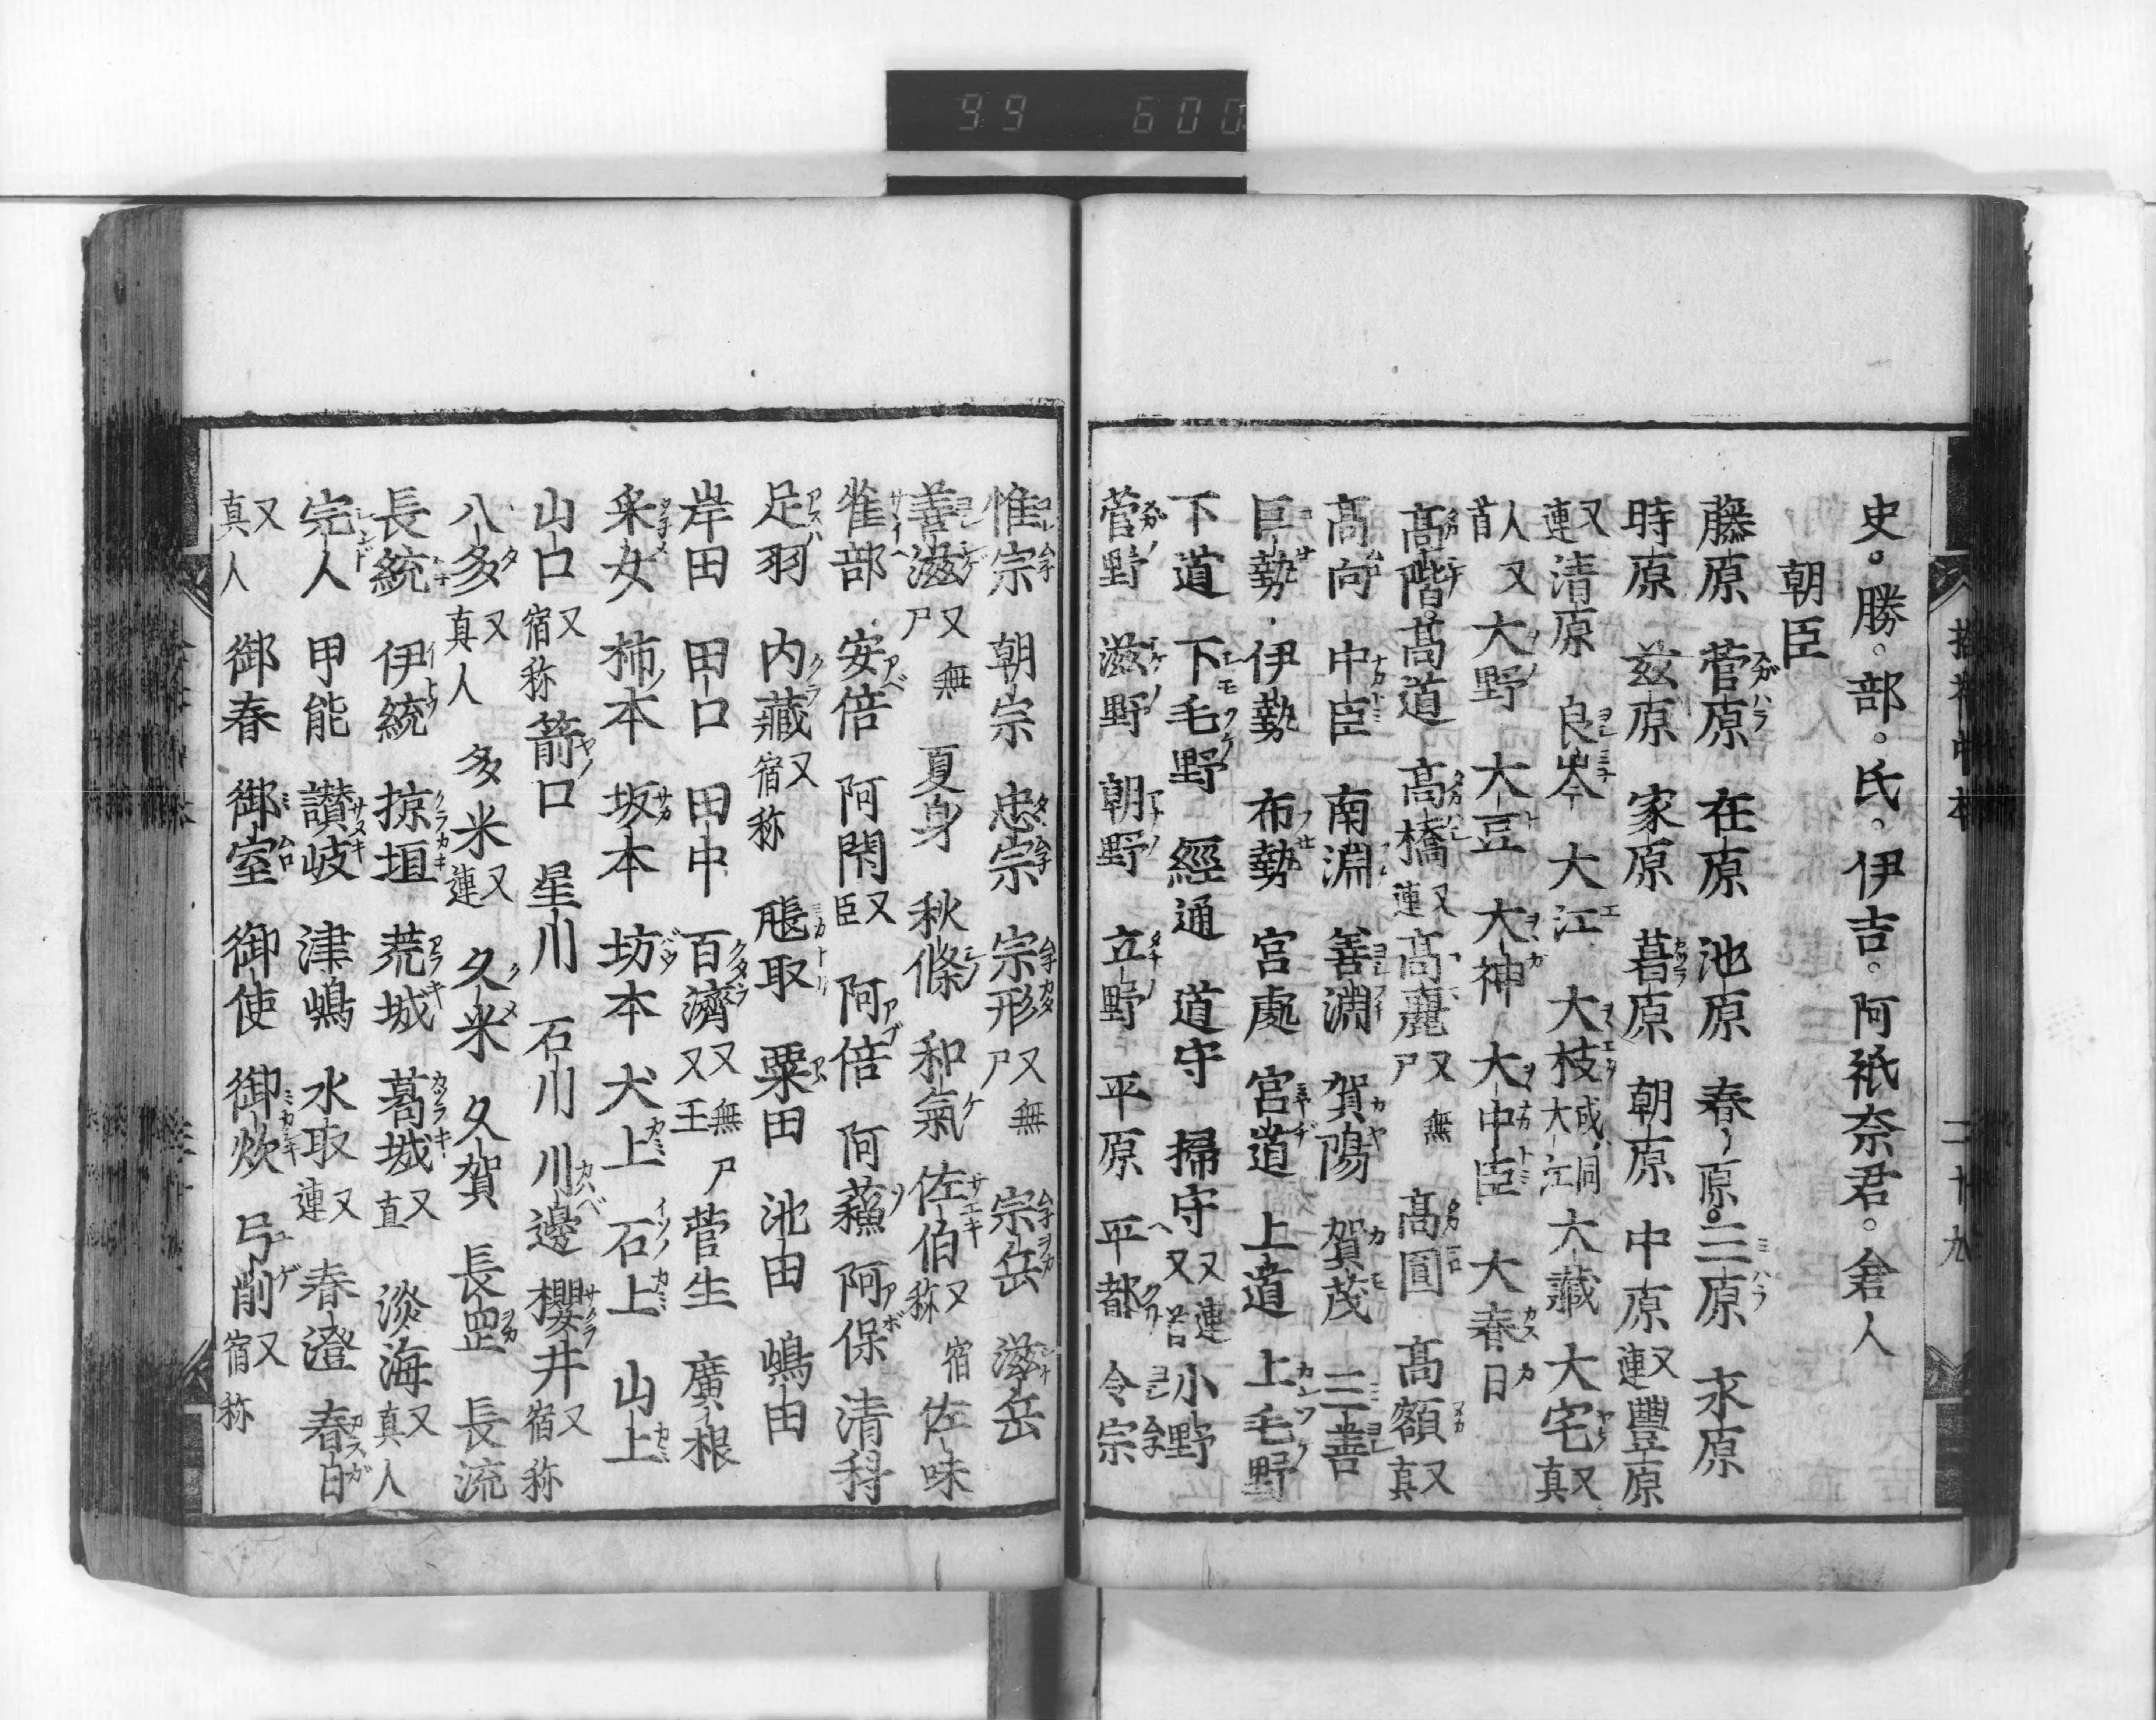 99 600
史。勝。部。氏。伊吉。阿祇奈君。倉人
朝臣
藤原 菅原 在原 池原 春原。三原 永原
時原 玆原 家原 葛原 朝原 中原 又連 豐原
又連 清原 良岑 大江 大枝 大江 大藏 大宅 又真
人 又首 大野 大豆 大神 大中臣 大春日
髙階。髙道 髙橋 又連 髙麗 又無尸 髙圓 髙額 又真
髙向 中臣 南淵 善淵 賀陽 賀茂 三善
巨勢 伊勢 布勢 宮處 宮道 上道 上毛野
下道 下毛野 經通 道守 掃守 小野
菅野 滋野 朝野 立野 平原 平都 令宗
惟宗 朝宗 忠宗 宗形 又無尸 宗岳 滋岳
善滋 又無尸 夏身 秋條 和氣 佐伯 又宿称 佐味
雀部 安倍 阿閇 又臣 阿倍 阿蘓 阿保 清科
足羽 内藏 又宿称 取 粟田 池田 嶋田
岸田 田口 田中 百濟 又無尸又王 菅生 廣根
采女 柿本 坂本 坊本 犬上 石上 山上
山口 又宿称 箭口 星川 石川 川邊 櫻井 又宿称
八多 又真人 多米 又連 久米 久賀 長罡 長流
長統 伊統 掠垣 荒城 葛城 又直 淡海 又真人
完人 甲能 讃岐 津嶋 水取 又連 春澄 春日
又真人 御春 御室 御使 御炊 弓削 又宿称